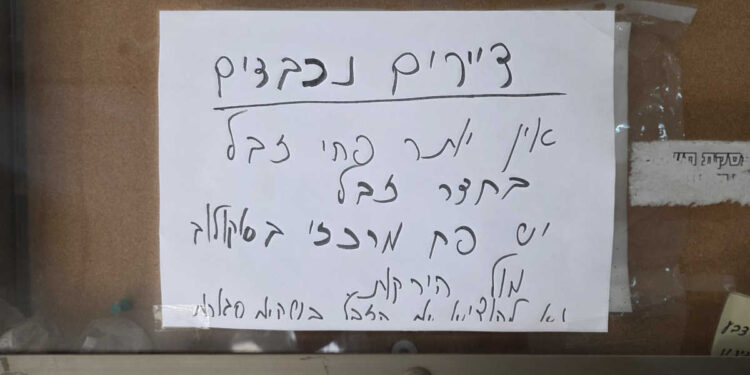 דיירים נכבדים
אין יותר פחי זבל
בחדר זבל
יש פח מרכזי בסוקולוב
מול הירקן
נא להוציא את הזבל בשקיות סגורות